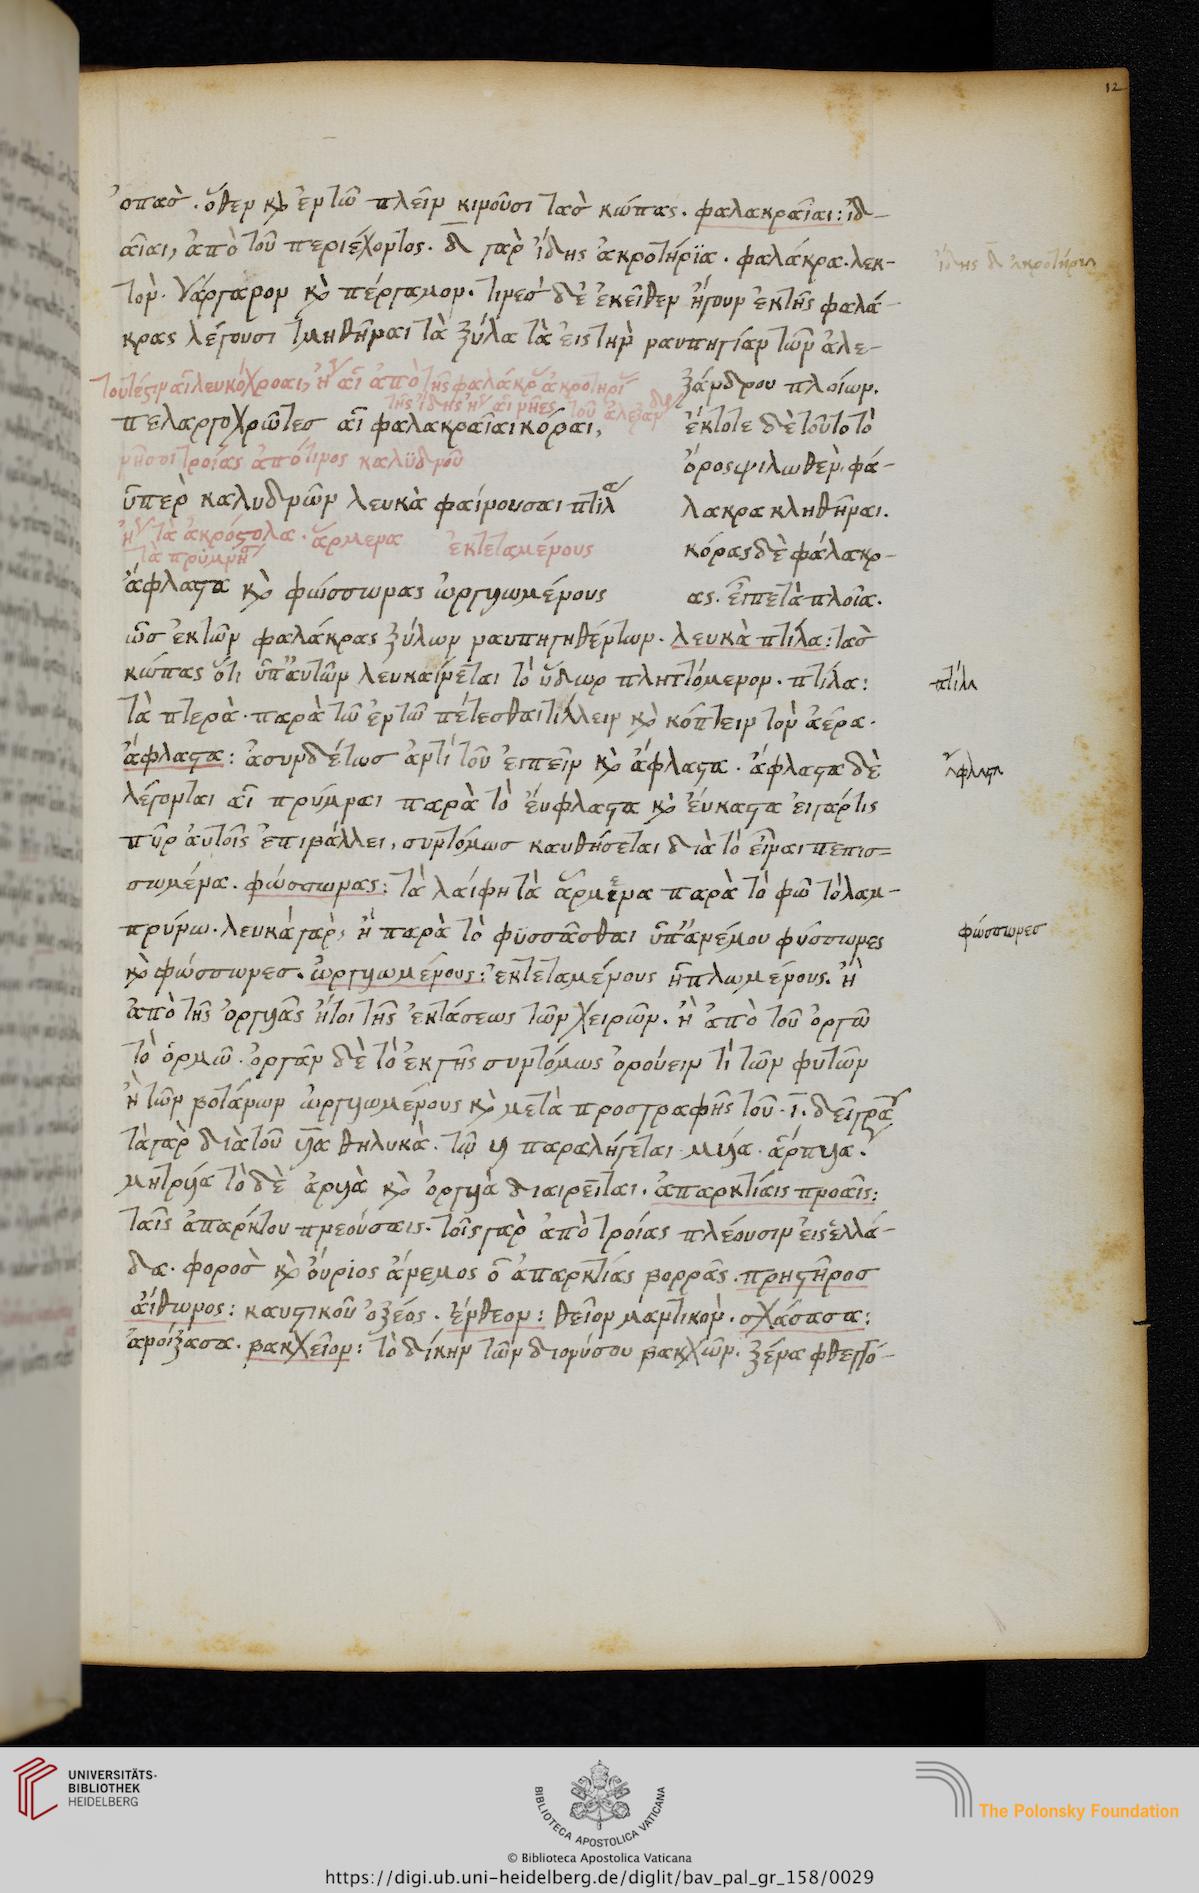 12
ὀπασ. ὅθεν κ̀ ἐν τῶ πλεῖν κινοῦσι τασ κώπας. φαλακραῖαι: ἰδ-
αῖαι, ἀπὸ τοῦ περιέχοντος. δ̄ γαρ ἴδης ἀκροτήρϊα. φαλάκρα. λεκ-
τον. γάργαρον κ̀ πέργαμον. τινεσ δὲ ἐκεῖθεν ἤγουν ἐκ τῆς φαλά-
κρας λέγουσι τμηθῆναι τὰ ξύλα τὰ εἰς τὴν ναυπηγίαν τῶν ἀλε-
ξάνδρου πλοίων.
ἔκτοτε δὲ τοῦτο τὸ
ὄρος ψιλωθὲν φά-
λακρα κληθῆναι.
κόρας δὲ φάλακρ-
ας. εἶπε τὰ πλοῖα.
ἴδης δ̄ ἀκροτήρια
τουτέστιν αἱ λευκόχροαι, ἢ αἱ ἀπὸ τῆς φαλάκρ ἀκροτηρί
τῆς ἴδης
πελαργοχρῶτεσ αἱ φαλακραῖαι κόραι,
νῆσοι τροίας ἀπό τινος καλϋδνοῦ
ὑπὲρ καλυδνῶν λευκὰ φαίνουσαι πτίλα
τὰ ἀκρόστολα. ἄρμενα ἐκτεταμένους
τὰ πρϋμνῆ
ἄφλαστα κ̀ φώσσωνας ὠργυιωμένους
ὡσ ἐκ τῶν φαλάκρας ξύλων ναυπηγηθέντων. λευκὰ πτίλα: τασ
κώπας ὅτι ὑπ' αυτῶν λευκαίνεται τὸ ὕδωρ πληττόμενον. πτίλα:
πτίλα
τὰ πτερὰ. παρὰ τῶ ἐν τῶ πέτεσθαι τίλλειν κ̀ κόπτειν τὸν ἀέρα.
ἄφλαστα: ἀσυνδέτωσ ἀντὶ τοῦ ειπεῖν κ̀ ἄφλαστα. ἄφλαστα δὲ
ἄφλαστα
λέγονται αἱ πρύμναι παρὰ τὸ ἔυφλαστα κ̀ ἔυκαστα ει γάρ τις
πῦρ ἀυτοῖς ἐπιβάλλει, συντόμωσ καυθήσεται διὰ τὸ εἶναι πεπισ-
σωμένα. φώσσωνας: τὰ λαίφη τὰ ἄρμενα παρὰ τὸ φῶ τὸ λαμ-
πρύνω. λευκὰ γαρ, ἢ παρὰ τὸ φϋσσᾶσθαι ὑπ' ἀνέμου φύσσωνες
φώσσωνεσ
κ̀ φώσσωνεσ. ὠργυιωμένους: ἐκτεταμένους ἡπλωμένους. ἢ
ἀπὸ τῆς ὀργυιᾶς ἤτοι τῆς ἐκτάσεως τῶν χειρῶν. ἢ ἀπὸ τοῦ ὀργῶ
τὸ ὁρμῶ. ὀργᾶν δὲ τὸ ἐκ γῆς συντόμως ὀρούειν τὶ τῶν φυτῶν
ἢ τῶν βοτάνων ὠργυιωμένους κ̀ μετὰ προσγραφῆς τοῦ. ῑ. δεῖ γρά
τὰ γὰρ διὰ τοῦ υια θηλυκὰ. τῶ υι παραλήγεται μυῖα. ἅρπυια.
μητρυιά τὸ δὲ ἀρυιὰ κ̀ ὀργυιὰ διαιρεῖται. ἀπαρκτίαις πνοαῖς:
ταῖς ἀπ' ἄρκτου πνεούσαις. τοῖς γὰρ ἀπὸ τροίας πλέουσιν εἰς ἑλλά-
δα. φοροσ κ̀ ὄυριος ἄνεμος ὁ ἀπαρκτίας βορρᾶς. πρηστῆροσ
ἄιθωνος: καυστικοῦ ὀξέος. ἔνθεον: θεῖον μαντικὸν. σχάσασα:
ἀνοίξασα. βακχεῖον: τὸ δίκην τῶν διονύσου βακχῶν. ξένα φθεγγό-
UNIVERSITÄTS-
BIBLIOTHEK
HEIDELBERG
BIBLIOTECA APOSTOLICA VATICANA
The Polonsky Foundation
© Biblioteca Apostolica Vaticana
https://digi.ub.uni-heidelberg.de/diglit/bav_pal_gr_158/0029